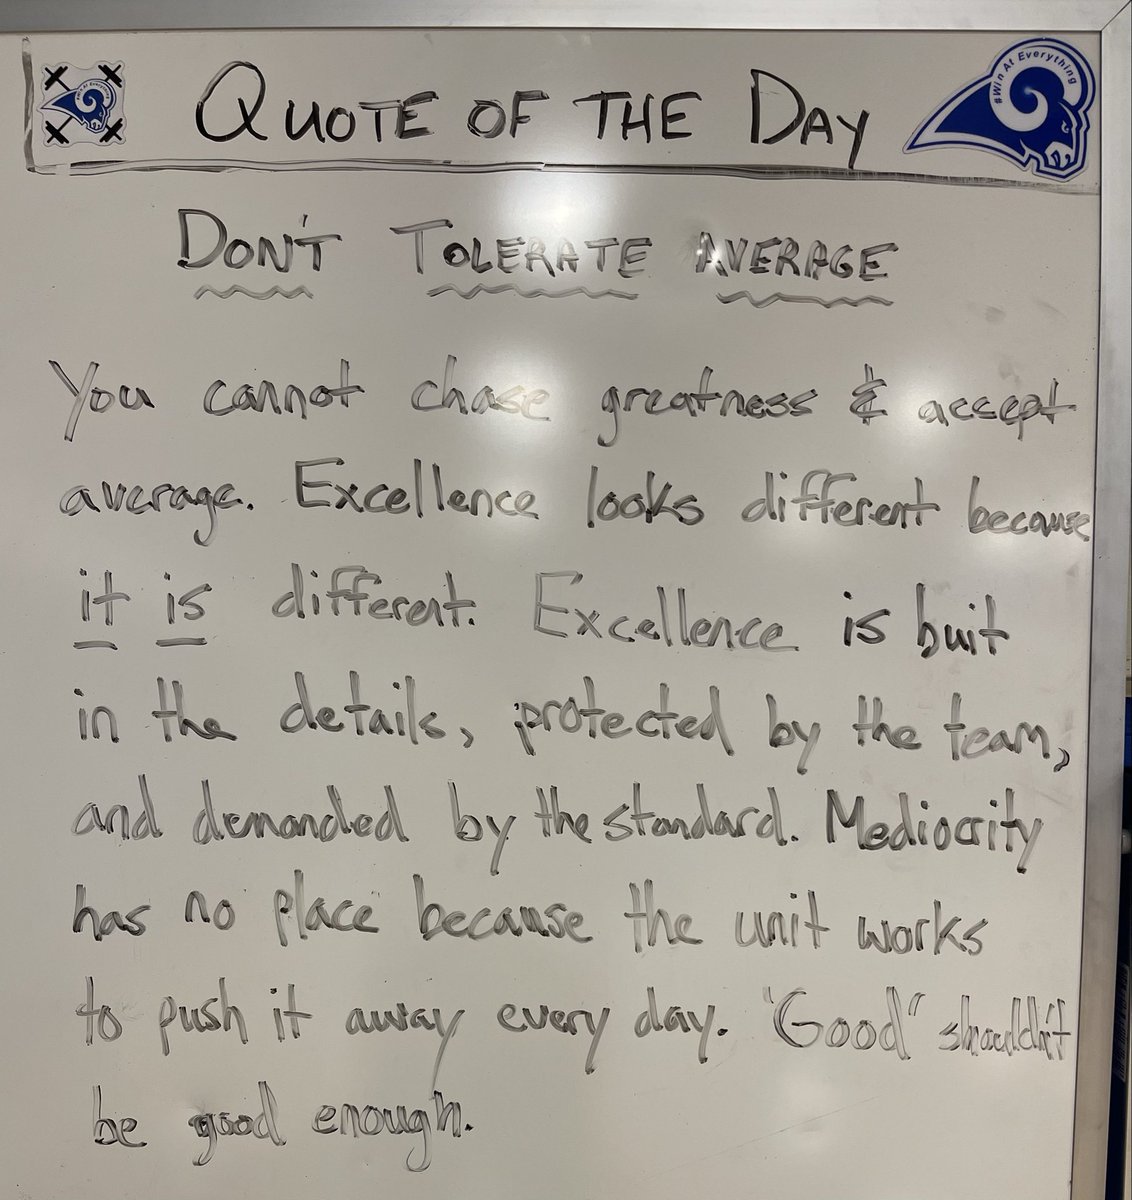 QUOTE OF THE DAY
#Win At Everything
DON'T TOLERATE AVERAGE
You cannot chase greatness & accept
average. Excellence looks different because
it is different. Excellence is buit
in the details, protected by the team,
and demanded by the standard. Mediocrity
has no place because the unit works
to push it away every day. "Good" shouldn't
be good enough.